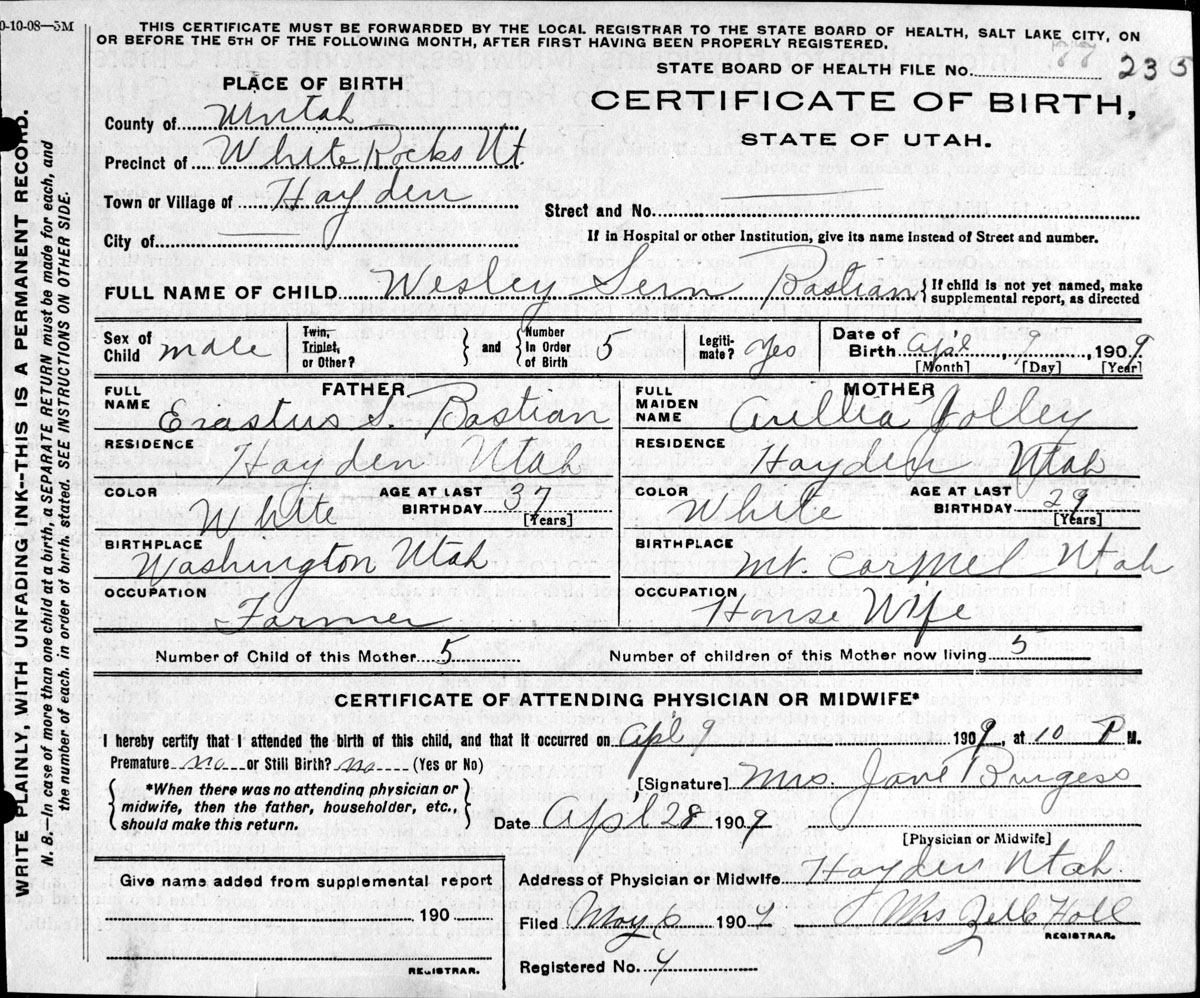 0-10-08—5M
THIS CERTIFICATE MUST BE FORWARDED BY THE LOCAL REGISTRAR TO THE STATE BOARD OF HEALTH, SALT LAKE CITY, ON
OR BEFORE THE 5TH OF THE FOLLOWING MONTH, AFTER FIRST HAVING BEEN PROPERLY REGISTERED.
WRITE PLAINLY, WITH UNFADING INK--THIS IS A PERMANENT RECORD.
N. B.—In case of more than one child at a birth, a SEPARATE RETURN must be made for each, and
the number of each, in order of birth, stated. SEE INSTRUCTIONS ON OTHER SIDE.
STATE BOARD OF HEALTH FILE NO. 77 235
CERTIFICATE OF BIRTH,
STATE OF UTAH.
PLACE OF BIRTH
County of Uintah
Precinct of White Rocks Ut.
Town or Village of Hayden
Street and No.
City of
If in Hospital or other Institution, give its name instead of Street and number.
FULL NAME OF CHILD Wesley Sern Bastian { If child is not yet named, make
supplemental report, as directed
Sex of Child male Twin, Triplet, or Other? } and { Number In Order of Birth 5 Legiti-mate? Yes Date of Birth Apl 9, 1909
[Month] [Day] [Year]
FATHER
FULL NAME Erastus S. Bastian
RESIDENCE
Hayden Utah
COLOR White AGE AT LAST BIRTHDAY 37 [Years]
BIRTHPLACE
Washington Utah
OCCUPATION
Farmer
MOTHER
FULL MAIDEN NAME Jolley
RESIDENCE
Hayden Utah
COLOR White AGE AT LAST BIRTHDAY 29 [Years]
BIRTHPLACE
Mt. Carmel Utah
OCCUPATION
House Wife
Number of Child of this Mother 5 Number of children of this Mother now living 5
CERTIFICATE OF ATTENDING PHYSICIAN OR MIDWIFE*
I hereby certify that I attended the birth of this child, and that it occurred on Apl 9 1909, at 10 P M.
Premature no or Still Birth? no (Yes or No)
[Signature] Mrs. Jane Burgess
{ *When there was no attending physician or
midwife, then the father, householder, etc.,
should make this return. }
Date Apl 28 1909
[Physician or Midwife]
Give name added from supplemental report
190
REGISTRAR.
Address of Physician or Midwife. Hayden Utah.
Filed May 6 190 Mrs Holl
REGISTRAR.
Registered No. 4